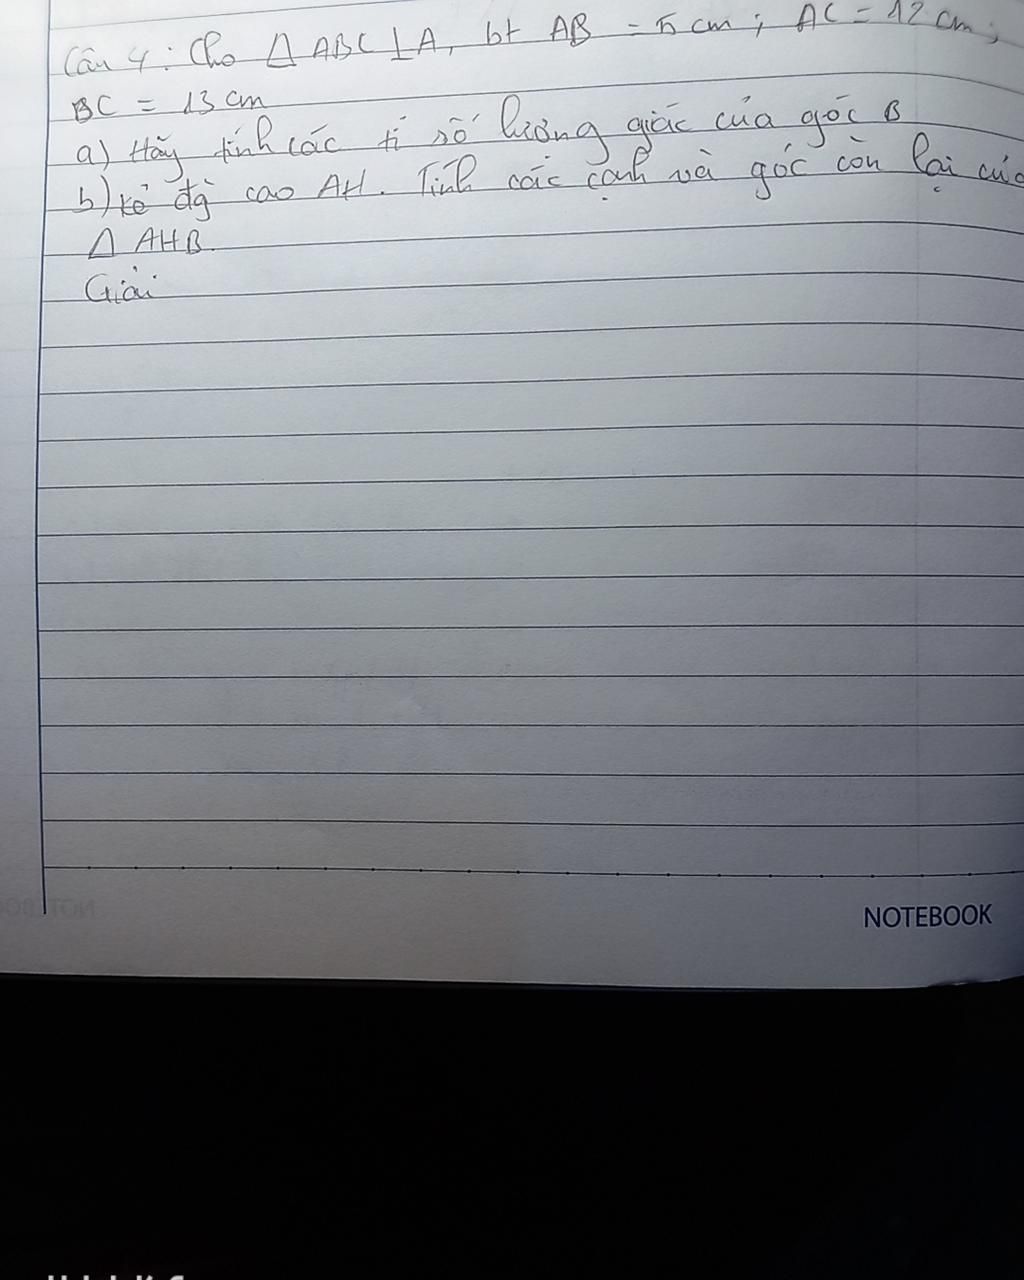 Câu 4: Cho Δ ABC ⊥ A, bt AB = 5 cm; AC = 12 cm;
BC = 13 cm
a) Hãy tính các tỉ số lượng giác của góc B
b) Kẻ đg cao AH. Tính các cạnh và góc còn lại của
Δ AHB.
Giải
NOTEBOOK